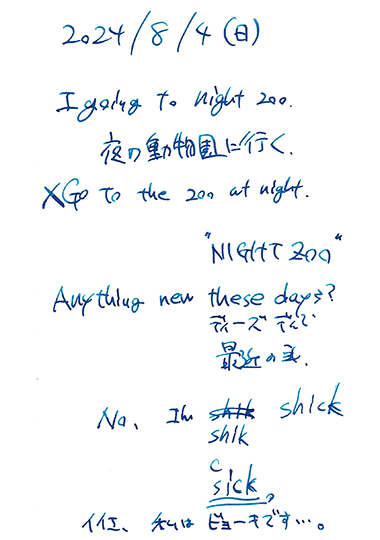 2024/8/4(日)
I going to night zoo.
夜の動物園に行く.
XGo to the zoo at night.
"NIGHT ZOO"
Anything new these days?
ディーズ デイズ
最近の
No, Im shik shick
shik
c
sick.
イイエ、私はビョーキです…。